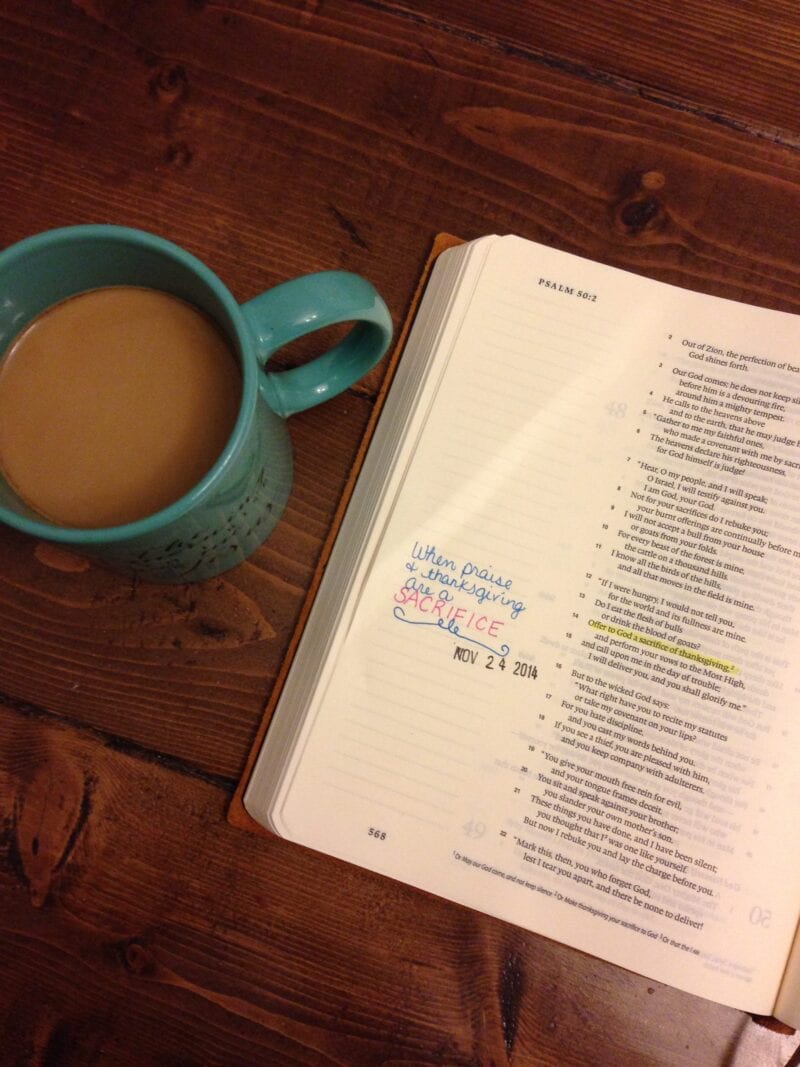 PSALM 50:2
When praise
& thanksgiving
are a
SACRIFICE
NOV 24 2014
2 Out of Zion, the perfection of
God shines forth.
3 Our God comes; he does not keep
before him is a devouring fire,
around him a mighty tempest.
4 He calls to the heavens above
and to the earth, that he may judge
5 "Gather to me my faithful ones,
who made a covenant with me by
6 The heavens declare his righteousness,
for God himself is judge!
7 "Hear, O my people, and I will speak;
O Israel, I will testify against you.
I am God, your God.
8 Not for your sacrifices do I rebuke you;
your burnt offerings are continually before
9 I will not accept a bull from your house
or goats from your folds.
10 For every beast of the forest is mine,
the cattle on a thousand hills.
11 I know all the birds of the hills,
and all that moves in the field is mine.
12 "If I were hungry, I would not tell you,
for the world and its fullness are mine.
13 Do I eat the flesh of bulls
or drink the blood of goats?
14 Offer to God a sacrifice of thanksgiving,2
and perform your vows to the Most High,
15 and call upon me in the day of trouble;
I will deliver you, and you shall glorify me."
16 But to the wicked God says:
"What right have you to recite my statutes
or take my covenant on your lips?
17 For you hate discipline,
and you cast my words behind you.
18 If you see a thief, you are pleased with him,
and you keep company with adulterers.
19 "You give your mouth free rein for evil,
and your tongue frames deceit.
20 You sit and speak against your brother;
you slander your own mother's son.
21 These things you have done, and I have been silent;
you thought that I3 was one like yourself.
But now I rebuke you and lay the charge before you.
22 "Mark this, then, you who forget God,
lest I tear you apart, and there be none to deliver!
1 Or May our God come, and not keep silence 2 Or Make thanksgiving your sacrifice to God 3 Or that the I AM
568